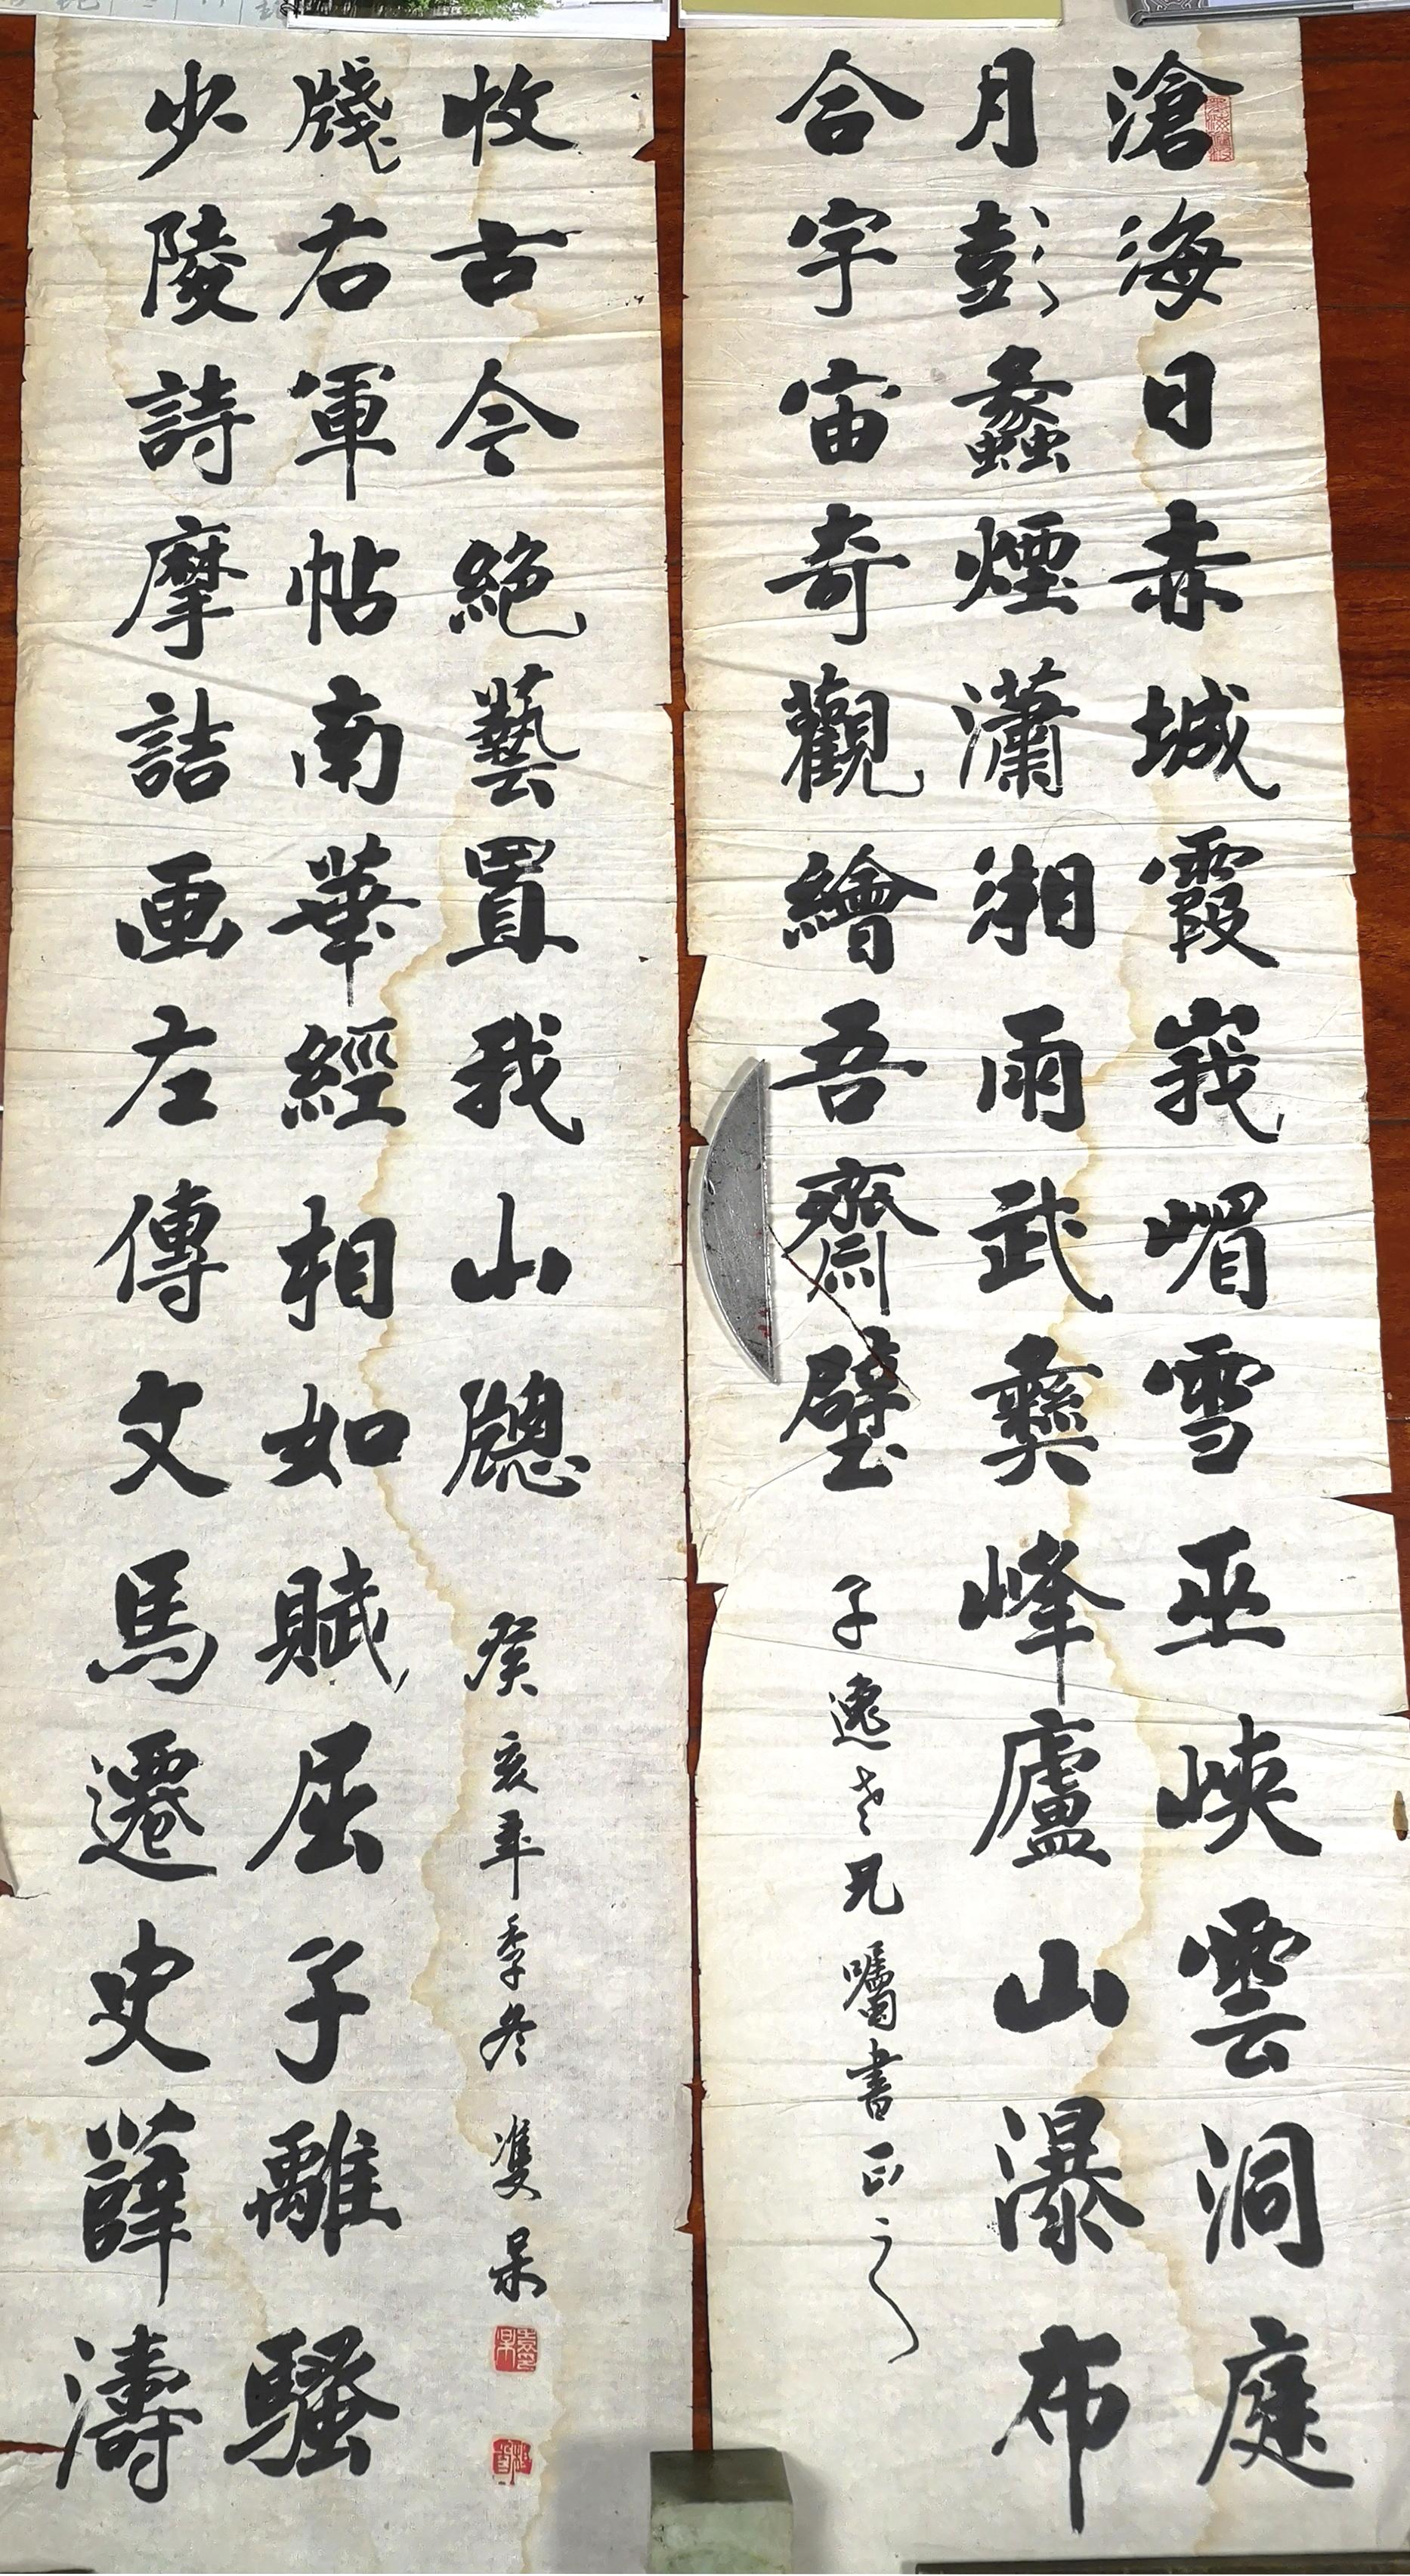 滄海日赤城霞峩嵋雪巫峽雲洞庭
月彭蠡煙瀟湘雨武彝峰廬山瀑布
合宇宙奇觀繪吾齋壁
子逸老兄囑書正之
少陵詩摩詰画左傳文馬遷史薛濤
牋右軍帖南華經相如賦屈子離騷
收古今絕藝置我山牕
癸亥年季冬